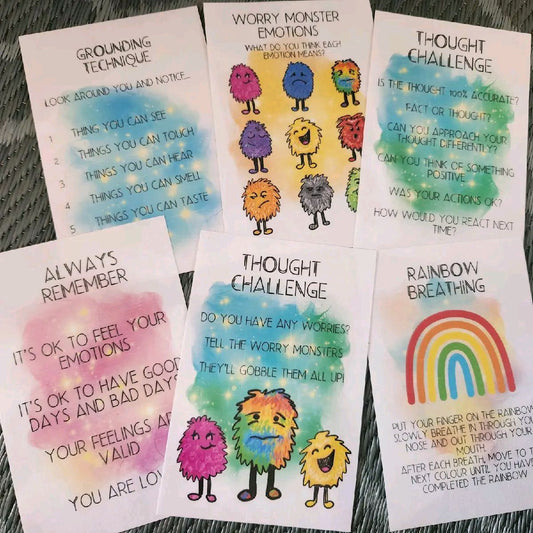 GROUNDING
TECHNIQUE
LOOK AROUND YOU AND NOTICE...
1 THING YOU CAN SEE
2 THINGS YOU CAN TOUCH
3 THINGS YOU CAN HEAR
4 THINGS YOU CAN SMELL
5 THINGS YOU CAN TASTE
WORRY MONSTER
EMOTIONS
WHAT DO YOU THINK EACH
EMOTION MEANS?
THOUGHT
CHALLENGE
IS THE THOUGHT 100% ACCURATE?
FACT OR THOUGHT?
CAN YOU APPROACH YOUR
THOUGHT DIFFERENTLY?
CAN YOU THINK OF SOMETHING
POSITIVE
WAS YOUR ACTIONS OK?
HOW WOULD YOU REACT NEXT
TIME?
ALWAYS
REMEMBER
IT'S OK TO FEEL YOUR
EMOTIONS
IT'S OK TO HAVE GOOD
DAYS AND BAD DAYS
YOUR FEELINGS
VALID
YOU ARE
THOUGHT
CHALLENGE
DO YOU HAVE ANY WORRIES?
TELL THE WORRY MONSTERS
THEY'LL GOBBLE THEM ALL UP!
RAINBOW
BREATHING
PUT YOUR FINGER ON THE RAINBOW
SLOWLY BREATHE IN THROUGH YOUR
NOSE AND OUT THROUGH YOUR
MOUTH
AFTER EACH BREATH, MOVE TO
NEXT COLOUR UNTIL YOU HAVE
COMPLETED THE RAINBOW